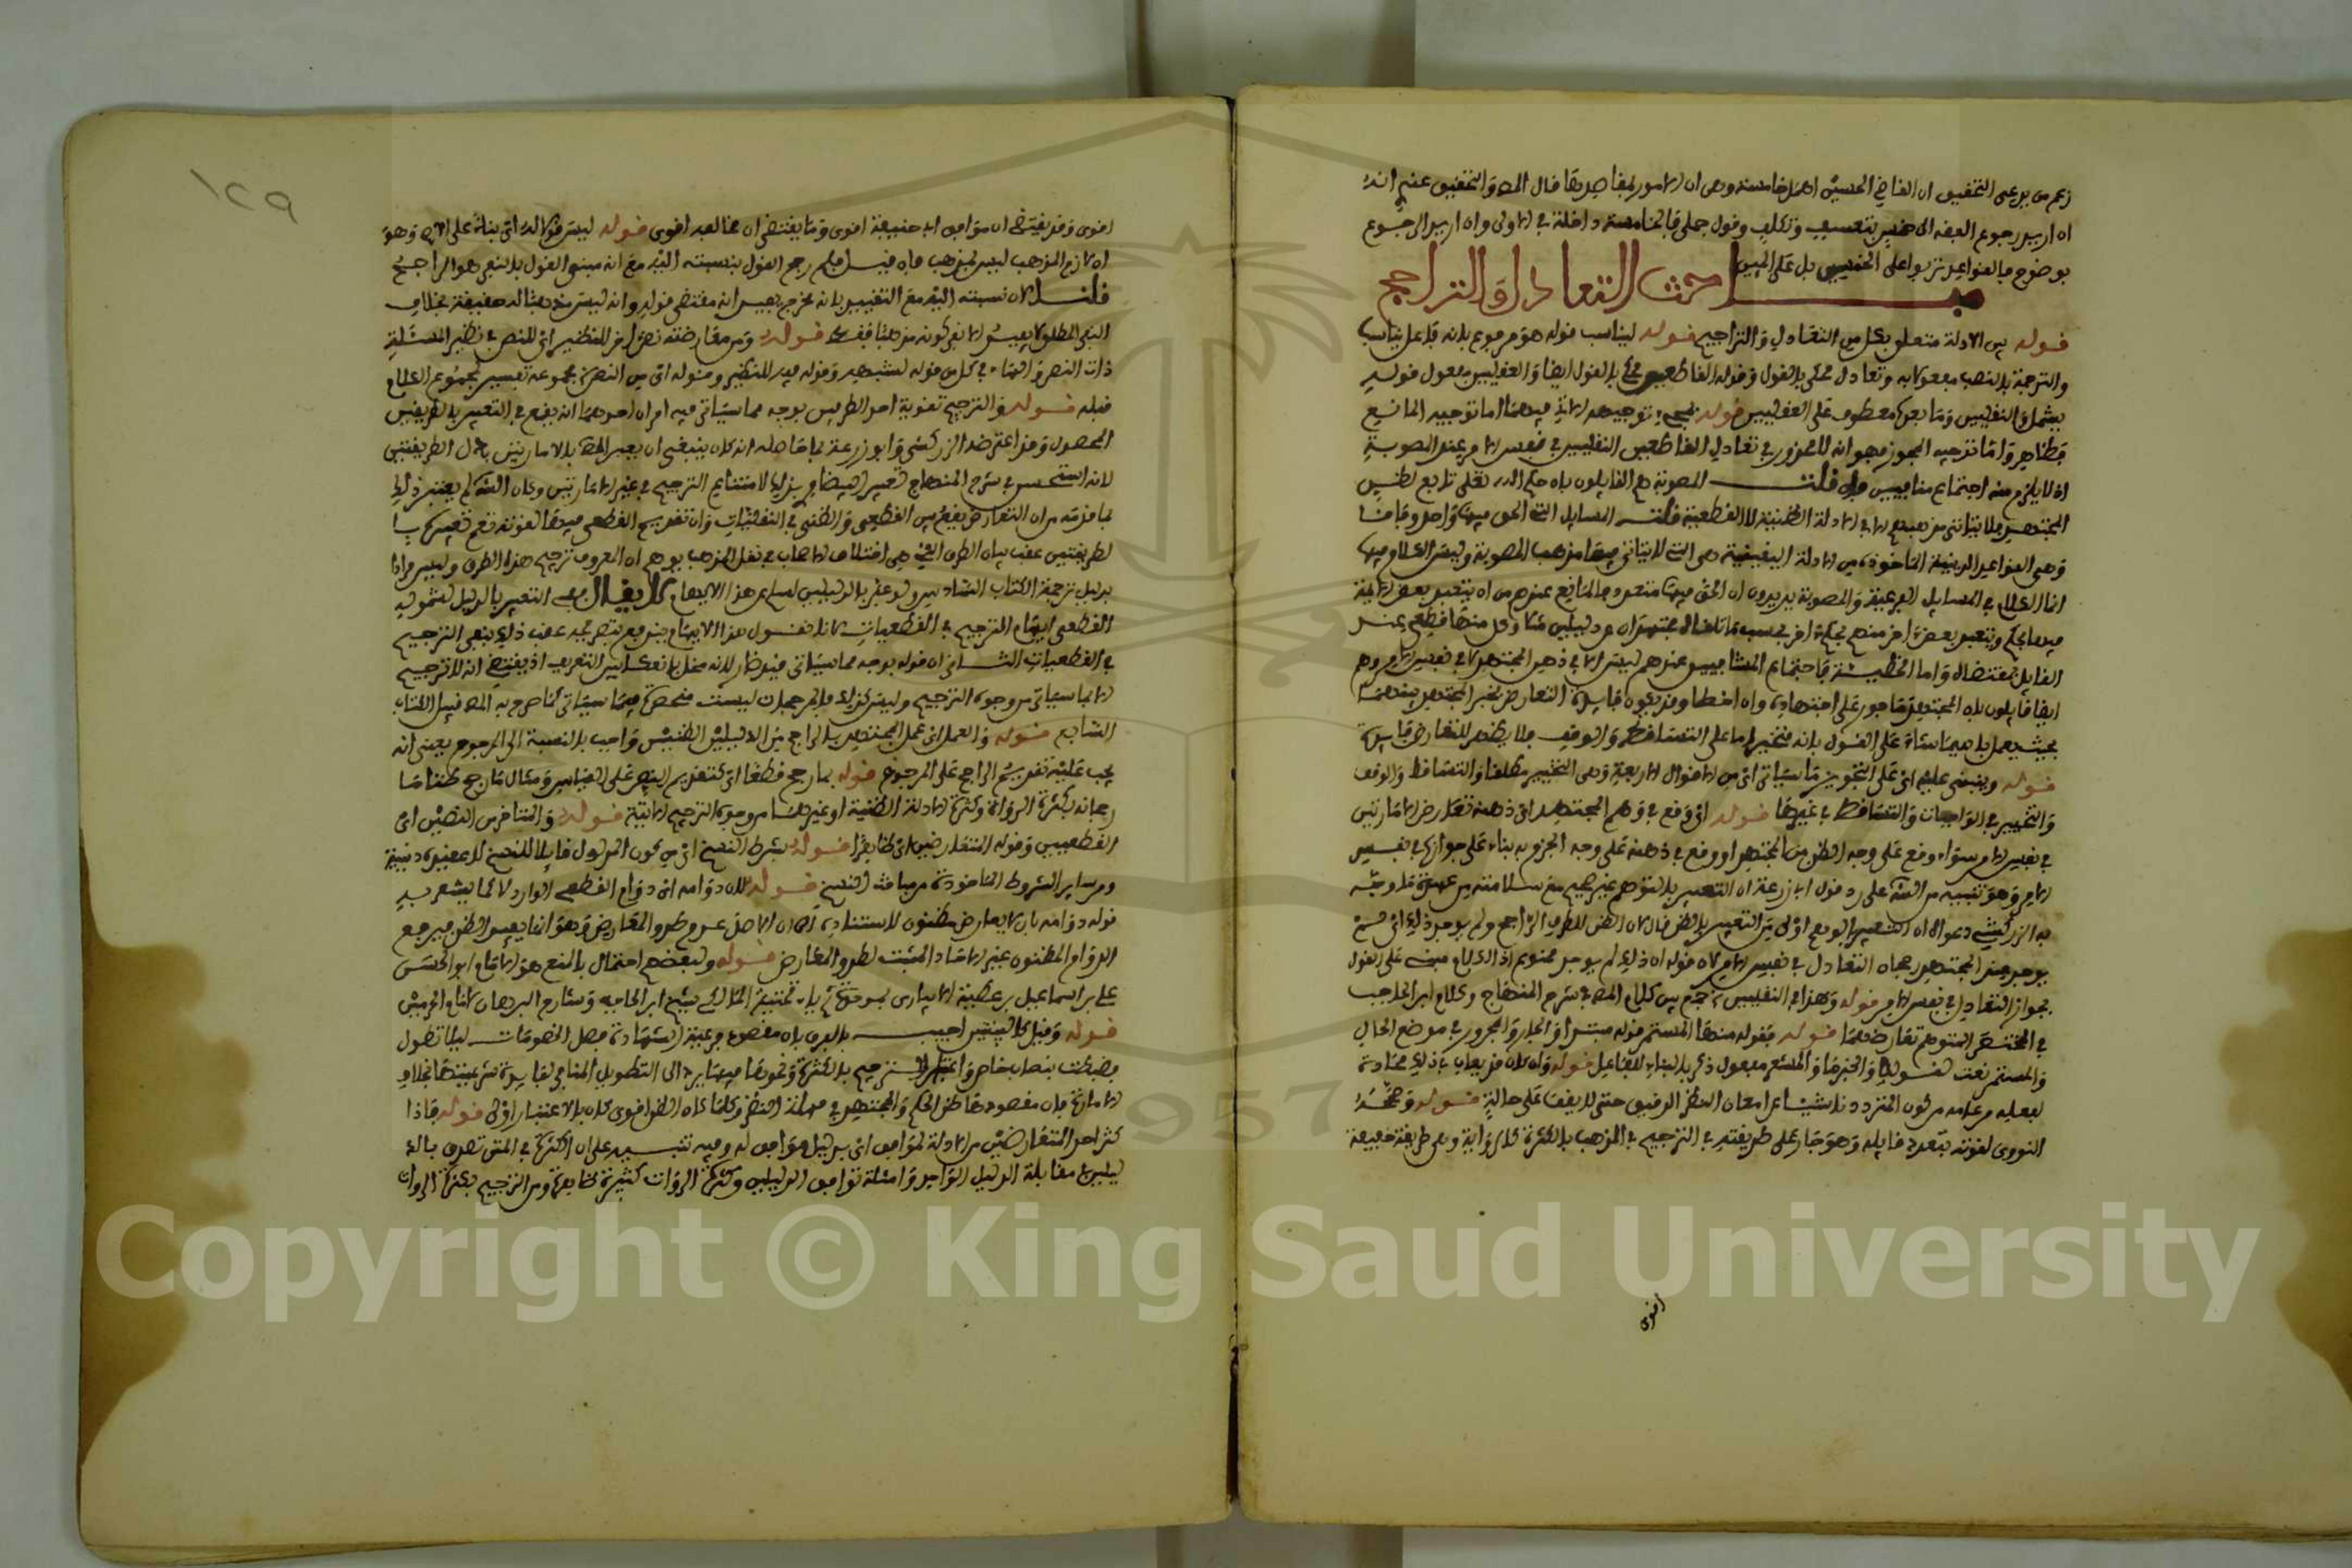 زعم من يدعى التحقيق ان القاضي الحسين اهمل خامسة وهي ان الامور بمقاصدها قال المص والتحقيق عندي انه
ان اريد رجوع الفقه الى خمس بتعسف وتكلف وقول جملي فالخامسة داخلة في الاولى وان اريد الرجوع
بوضوح فالقواعد تربوا على الخمسين بل على المئين
مبـــــاحث التعادل والتراجح
قوله بين الادلة متعلق بكل من التعادل والتراجيح قوله ليناسب قوله هو مرفوع بانه فاعل يناسب
والترجمة بالنصب مفعول به وتعادل محكي بالقول وقوله القاطعين محكي بالقول ايضا والعقليين مفعول قوله
يشمل والنقليين وما بعده معطوف على العقليين قوله توجيهه الاتي فيهما اما توجيه المانع
فظاهر واما توجيه المجوز فهو انه لا محذور في تعادل القاطعين النقليين في نفس الامر عند المصوبة
اذ لا يلزم منه اجتماع متنافيين فان قلت المصوبة هم القايلون بان حكم الله تعلى تابع لظن
المجتهد فلا يتاتى مذهبهم الا في الادلة الظنية لا القطعية قلت المسايل التي الحق فيها واحد وفاقا
وهي القواعد الدينية الماخوذة من الادلة اليقينية هي التي لا يتاتى فيها مذهب المصوبة وليس الكلام فيها
انما الكلام في المسايل الفرعية والمصوبة يريدون ان الحق فيها متعدد فما المانع عندهم من ان يتعبد بعض الامة
فيها بحكم ويتعبد بعض اخر منهم بحكم اخر بحسب ما تلقاه مجتهدان من دليلين مثلا وكل منهما قطعي عند
القايل بمقتضاه واما المخطئة فاجتماع المتنافيين عندهم ليس الا في ذهن المجتهد لا في نفس الامر وهم
ايضا قايلون بان المجتهد ماجور على اجتهاده وان اخطا وقد يكون فايدة التعارض تخير المجتهد بينهما
بحيث يعمل بايهما شاء على القول بانه مخير اما على التساقط والوقف فلا يظهر للتعارض فايدة
قوله وينبني عليه اي على التجويز ما سياتي اي من الاقوال الاربعة وهي التخيير مطلقا والتساقط والوقف
والتخيير في الواجبات والتساقط في غيرها قوله اي وقع في وهم المجتهد اي ذهنه تعارض الامارتين
في نفس الامر سواء وقع على وجه الظن من المجتهد او وقع في ذهنه على وجه الجزم به بناء على جوازه في نفس
الامر وهو تنبيه من الش على رد قول ابي زرعة ان التعبير بالتوهم غير صحيح مع سلامته من عهدة ما وجه
به الزركشي دعواه ان التعبير بالوهم اولى من التعبير بالظن فقال لان الظن للطرف الراجح ولم يوجد ذلك اي لم
يوجد عند المجتهد رجحان التعادل في نفس الامر لان قوله ان ذلك لم يوجد ممنوع اذ الكلام مبني على القول
بجواز التعادل في نفس الامر قوله وهذا في النقليين جمع بين كلام المص في شرح المنهاج وكلام ابن الحاجب
في المختصر المتوهم تعارضهما قوله فقوله منها المستمر قوله مبتدا والجار والمجرور في موضع الحال
والمستمر نعت لقوله والخبر ما والمستمر مفعول ذكر بالبناء للفاعل قوله وان كان قد يعاب بذلك عادة
لفعله من علمه من كون المتردد ناشيا عن امعان النظر الدقيق حتى لا يقف على حالة قوله وصححه
النووي لقوته بتعدد قايله وهو جار على طريقته في الترجيح في المذهب بالكثرة كالرواية وهي طريقة ضعيفة
اقوى
١٢٩
اقوى وقد يقتضي ان موافق ابي حنيفة اقوى وما يقتضي ان مخالفه اقوى قوله ليس قولا له اي بناء على الاصح وهو
ان لازم المذهب ليس بمذهب فان قيل فلم رجح القول بنسبته اليه مع ان مبنى القول بالنفي هو الراجح
قلنا لان نسبته اليه مع التقييد بانه مخرج يفيد انه مقتضى قوله وانه ليس مذهبا له حقيقة بخلاف
النفي المطلق لا يفيد الا نفي كونه مذهبا فقط قوله ومن معارضة نص اخر للنظير اي للنص في نظير المسئلة
قبله قوله والترجيح تقوية احد الطريقين بوجه مما سياتي فيه امران احدهما انه يقع في التعبير بالطريقين
المحصول وقد اعترضه الزركشي وابو زرعة بما حاصله انه كان ينبغي ان يعبر المص بالامارتين بدل الطريقين
لانه استحسن في شرح المنهاج تعبير البيضاوي بذلك لامتناع الترجيح في غير الامارتين وكان الش لم يعتبر ذلك
لما قدمه من ان التعارض يقع بين القطعي والظني في النقليات وان تقديم القطعي فيها لقوته نعم تعبيره با
لطريقين عقب بيان الطرق التي هي اختلاف الاصحاب في نقل المذهب يوهم ان المعروف ترجيح هذا الطرق وليس مرادا
بدليل ترجمة الكتاب السادس ولو عبر بالدليلين لسلم من هذا الايهام لا يقال في التعبير بالدليل لشموله
القطعي ايهام الترجيح في القطعيات لانا نقول هذا الايهام يندفع بتصريحه عقب ذلك بنفي الترجيح
في القطعيات الثاني ان قوله بوجه مما سياتي فيه نظر لانه مخل بانعكاس التعريف اذ يقتضي انه لا ترجيح
الا بما سياتي من وجوه الترجيح وليس كذلك فالمرجحات ليست منحصرة فيما سياتي كما صرح به المص قبيل الكتاب
السابع قوله والعمل اي عمل المجتهد بالراجح من الدليلين الظنيين واجب بالنسبة الى المرجوح يعني انه
يجب عليه تقديم الراجح على المرجوح قوله بما رجح قطعا اي كتقديم النص على القياس ومثال ما رجح ظنا ما
رجحانه بكثرة الرواة وكثرة الادلة الظنية او غيرهما من وجوه الترجيح الاتية قوله والمتاخر من النصين اي
القطعيين وقوله المتعارضين اي ظاهرا قوله بشرط النسخ اي من كون المدلول قابلا للنسخ لا عقيدة دينية
ومن ساير الشروط الماخوذة من مباحث النسخ قوله لان دوامه اي دوام القطعي الوارد لا كما يشعر به
قوله دوامه بان لا يعارض مظنون لاستناده الى ان الاصل عدم طرو المعارض وهو انما يفيد الظن فيرجع
الدوام المظنون بخبر الاحاد المثبت لطرو المعارض قوله ولبعضهم احتمال بالمنع هو الامام ابو الحسن
علي بن اسماعيل بن عطية الابياري بموحدة ثم ياء تحتية المالكي شيخ ابن الحاجب وشارح البرهان لامام الحرمين
قوله وقيل كالبينتين اجيب بالفرق بان مقصود شرعية الشهادة فصل الخصومات ليلا تطول
فضبطت بنصاب خاص واعتبار الترجيح بالكثرة ونحوها فيها يرجع الى التطويل المنافي لفايدة شرعيتها بخلاف
الامارة فان مقصودها ظن الحكم والمجتهد في مهلة النظر وكلما كان الظن اقوى كان بالاعتبار اولى قوله فاذا
كثر احد المتعارضين من الادلة لموافق اي بدليل موافق له وفيه تنبيه على ان الكثرة في المتن تصدق بالد
ليلين في مقابلة الدليل الواحد وامثلة توافق الدليلين وكثرة الرواة كثيرة ظاهرة ومن الترجيح بكثرة الرواة
Copyright © King Saud University
1957